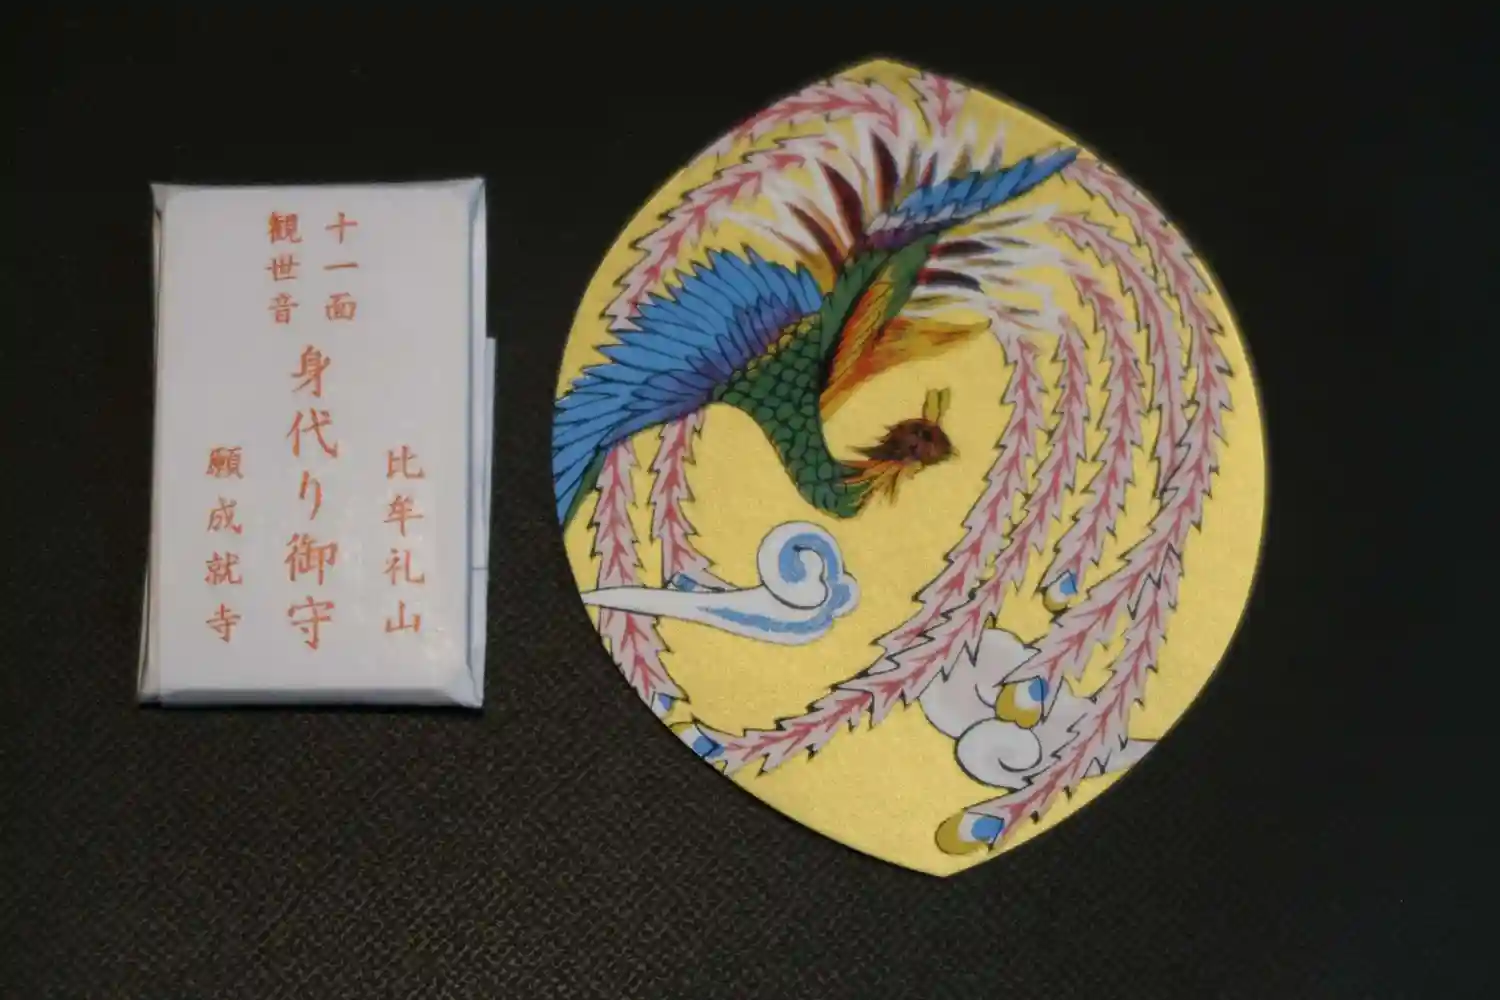 比牟礼山
十一面
観世音
身代り御守
願成就寺